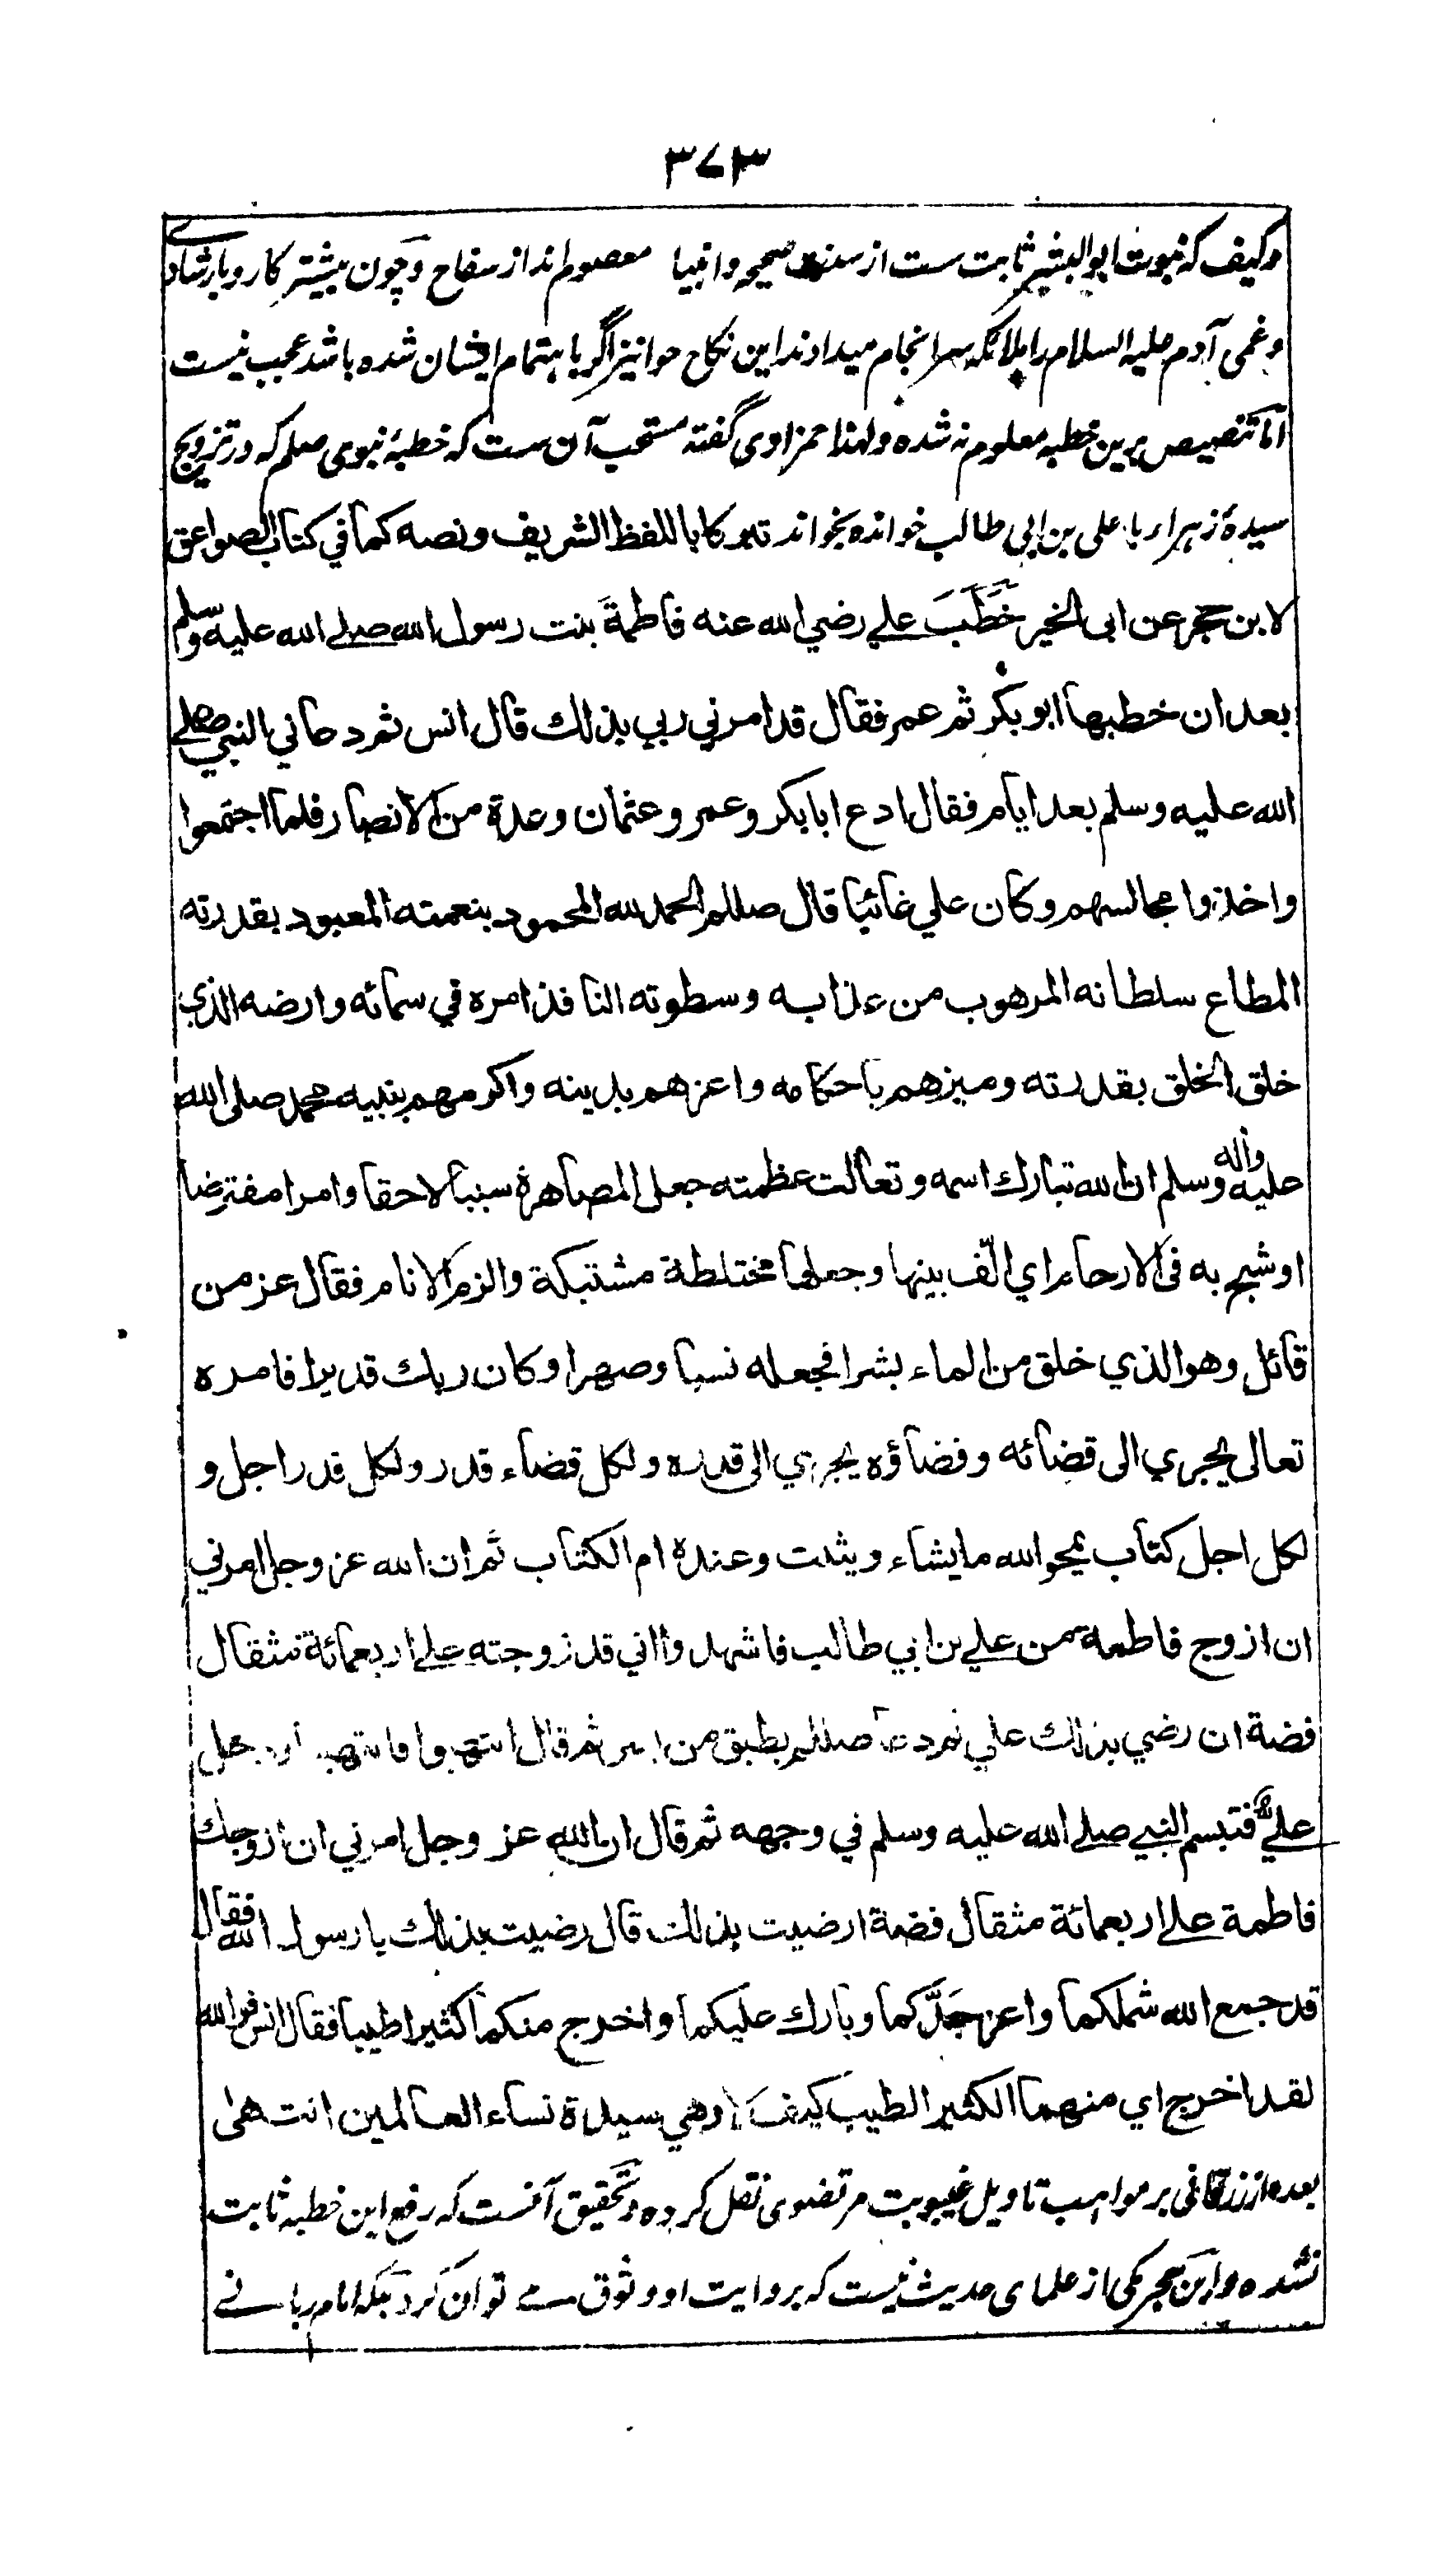 ۳۷۳
وکیف که نبوت ابو البشر ثابت ست از سنن صحیحه و انبیا معصوم اند از سفاح و چون بیشتر کاروبار شادی
و غمی آدم علیه السلام را ملائکه سرانجام میدادند این نکاح حوا نیز اگر باهتمام ایشان شده باشد عجب نیست
اما تنصیص برین خطبه معلوم نه شده ولهذا حمزاوی گفته مستحب آن ست که خطبۂ نبوی صلعم که در تزویج
سیدۂ زهراء با علی بن ابی طالب خوانده بخواند تبرکا باللفظ الشریف ونصه كما في كتاب الصواعق
لابن حجر عن ابی الخير خَطَبَ علي رضي الله عنه فاطمةَ بنت رسول الله صلے الله عليه وسلم
بعد ان خطبها ابو بكر ثم عمر فقال قد امرني ربي بذلك قال انس ثم دعاني النبي صلے
الله عليه وسلم بعد ايام فقال ادع ابا بكر وعمر وعثمان وعدة من الانصار فلما اجتمعوا
واخذوا مجالسهم وكان علي غائبا قال صللم الحمد لله المحمود بنعمته المعبود بقدرته
المطاع سلطانه المرهوب من عذابه وسطوته النافذ امره في سمائه وارضه الذي
خلق الخلق بقدرته وميزهم باحكامه واعزهم بدينه واكرمهم بنبيه محمد صلى الله
عليه واله وسلم ان الله تبارك اسمه وتعالت عظمته جعل المصاهرة سببا لاحقا وامرا مفترضا
اوشج به فى الارحام اي الّف بينها وجعلها مختلطة مشتبكة والزم الانام فقال عز من
قائل وهو الذي خلق من الماء بشرا فجعله نسبا وصهرا وكان ربك قديرا فامره
تعالى يجري الى قضائه وقضاؤه يجري الى قدره ولكل قضاء قدر ولكل قدر اجل و
لكل اجل كتاب يمحو الله ما يشاء ويثبت وعنده ام الكتاب ثم ان الله عز وجل امرني
ان ازوج فاطمة من علي بن ابي طالب فاشهدوا اني قد زوجته على اربعمائة مثقال
فضة ان رضي بذلك علي ثم دعا صللم بطبق من بسر ثم قال انتهبوا فانتهبنا ودخل
علي فتبسم النبي صلے الله عليه وسلم في وجهه ثم قال ان الله عز وجل امرني ان ازوجك
فاطمة على اربعمائة مثقال فضة ارضيت بذلك قال رضيت بذلك يا رسول الله فقال
قد جمع الله شملكما واعز جَدَّكما وبارك عليكما واخرج منكما كثيرا طيبا فقال انس فوالله
لقد اخرج اي منهما الكثير الطيب كيف لا وهي سيدة نساء العالمين انتهى
بعده از زرقانی بر مواهب تاویل غیبوبت مرتضوی نقل کرده و تحقیق آنست که رفع این خطبه ثابت
نشده و ابن حجر مکی از علمای حدیث نیست که بروایت او وثوق می توان کرد بلکه امام ربانے